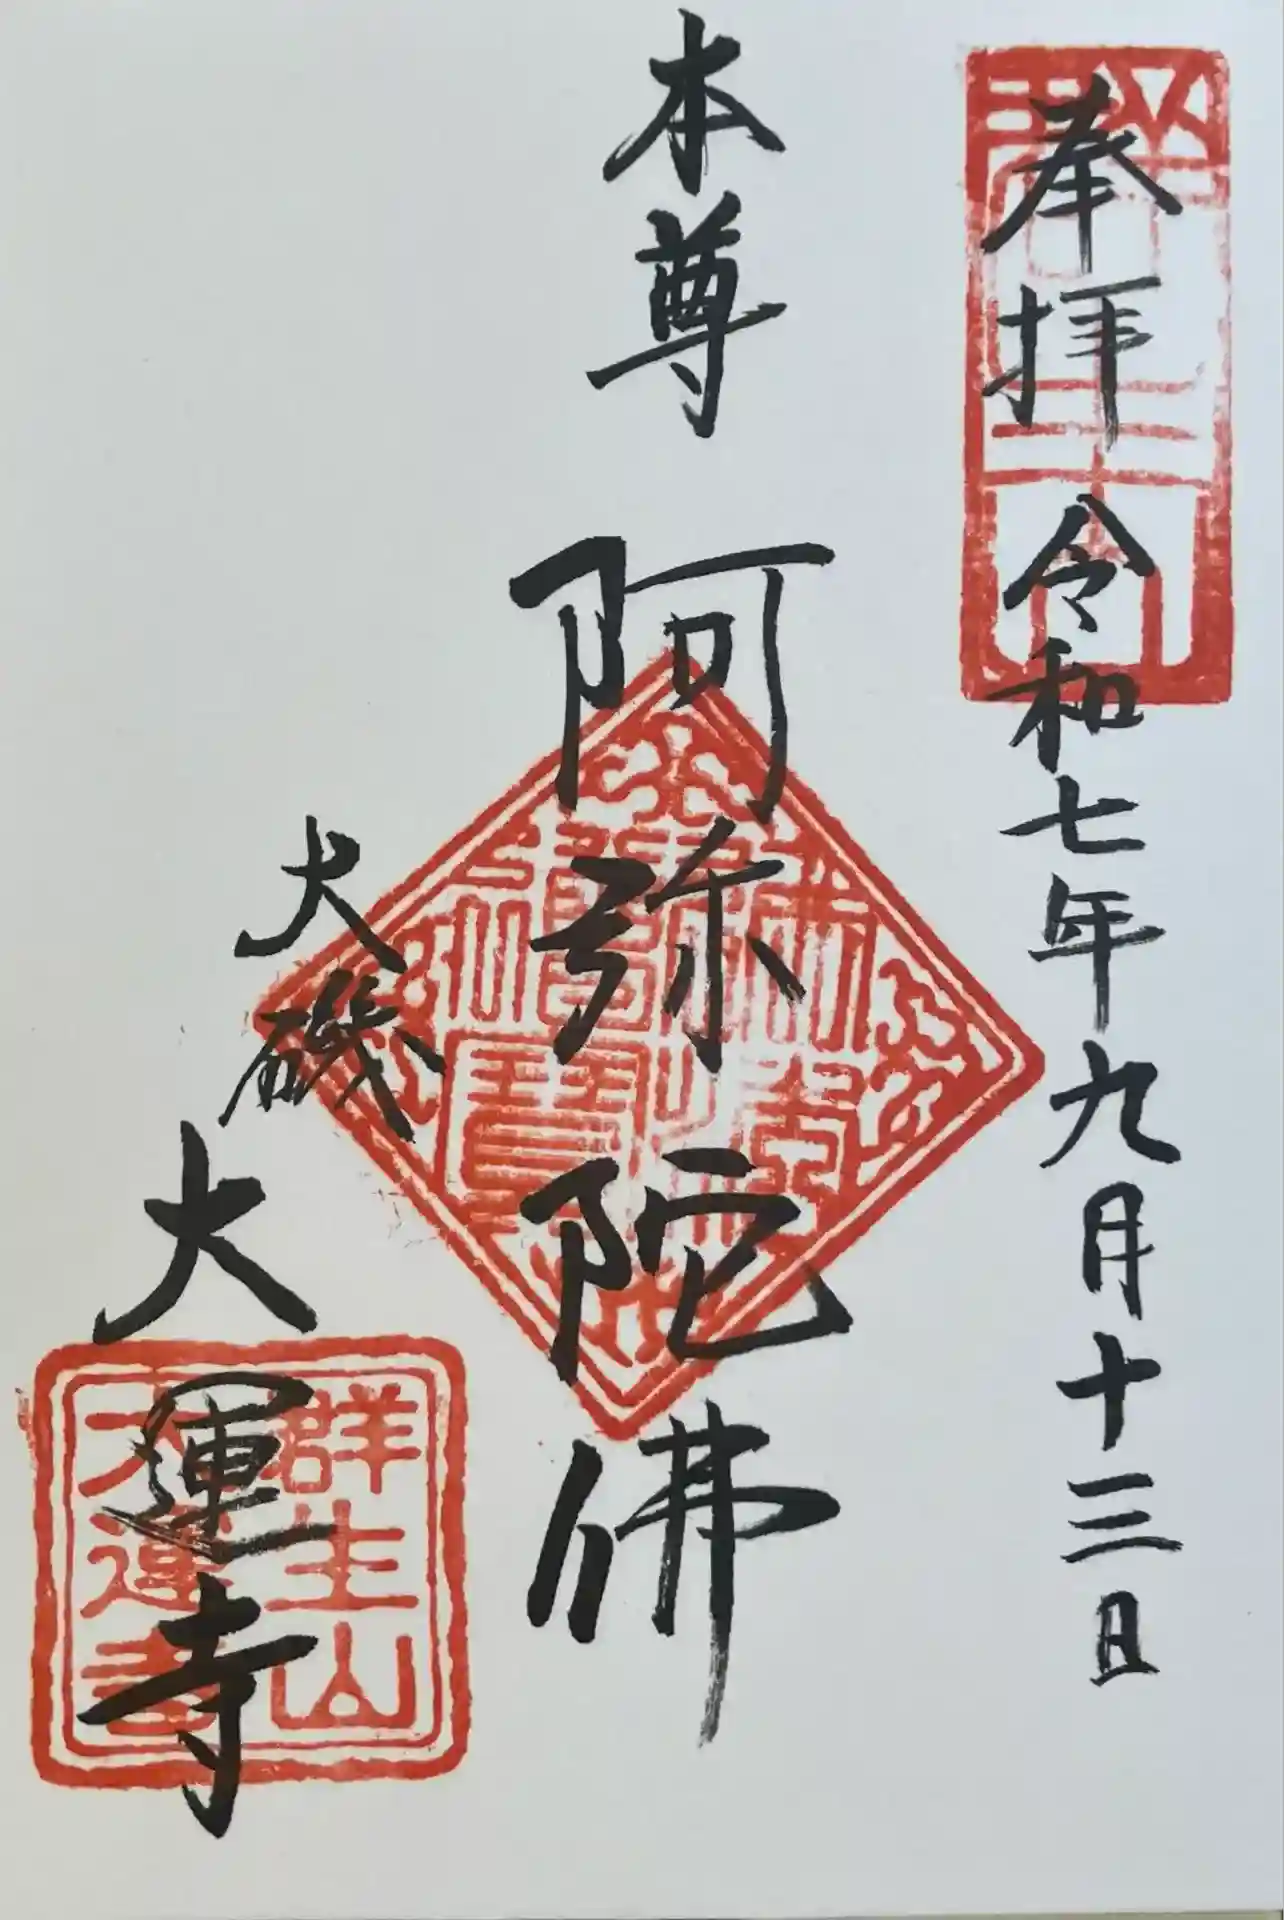 奉拝 令和七年九月十三日
本尊 阿弥陀佛
大磯
大運寺
群生山
大運寺